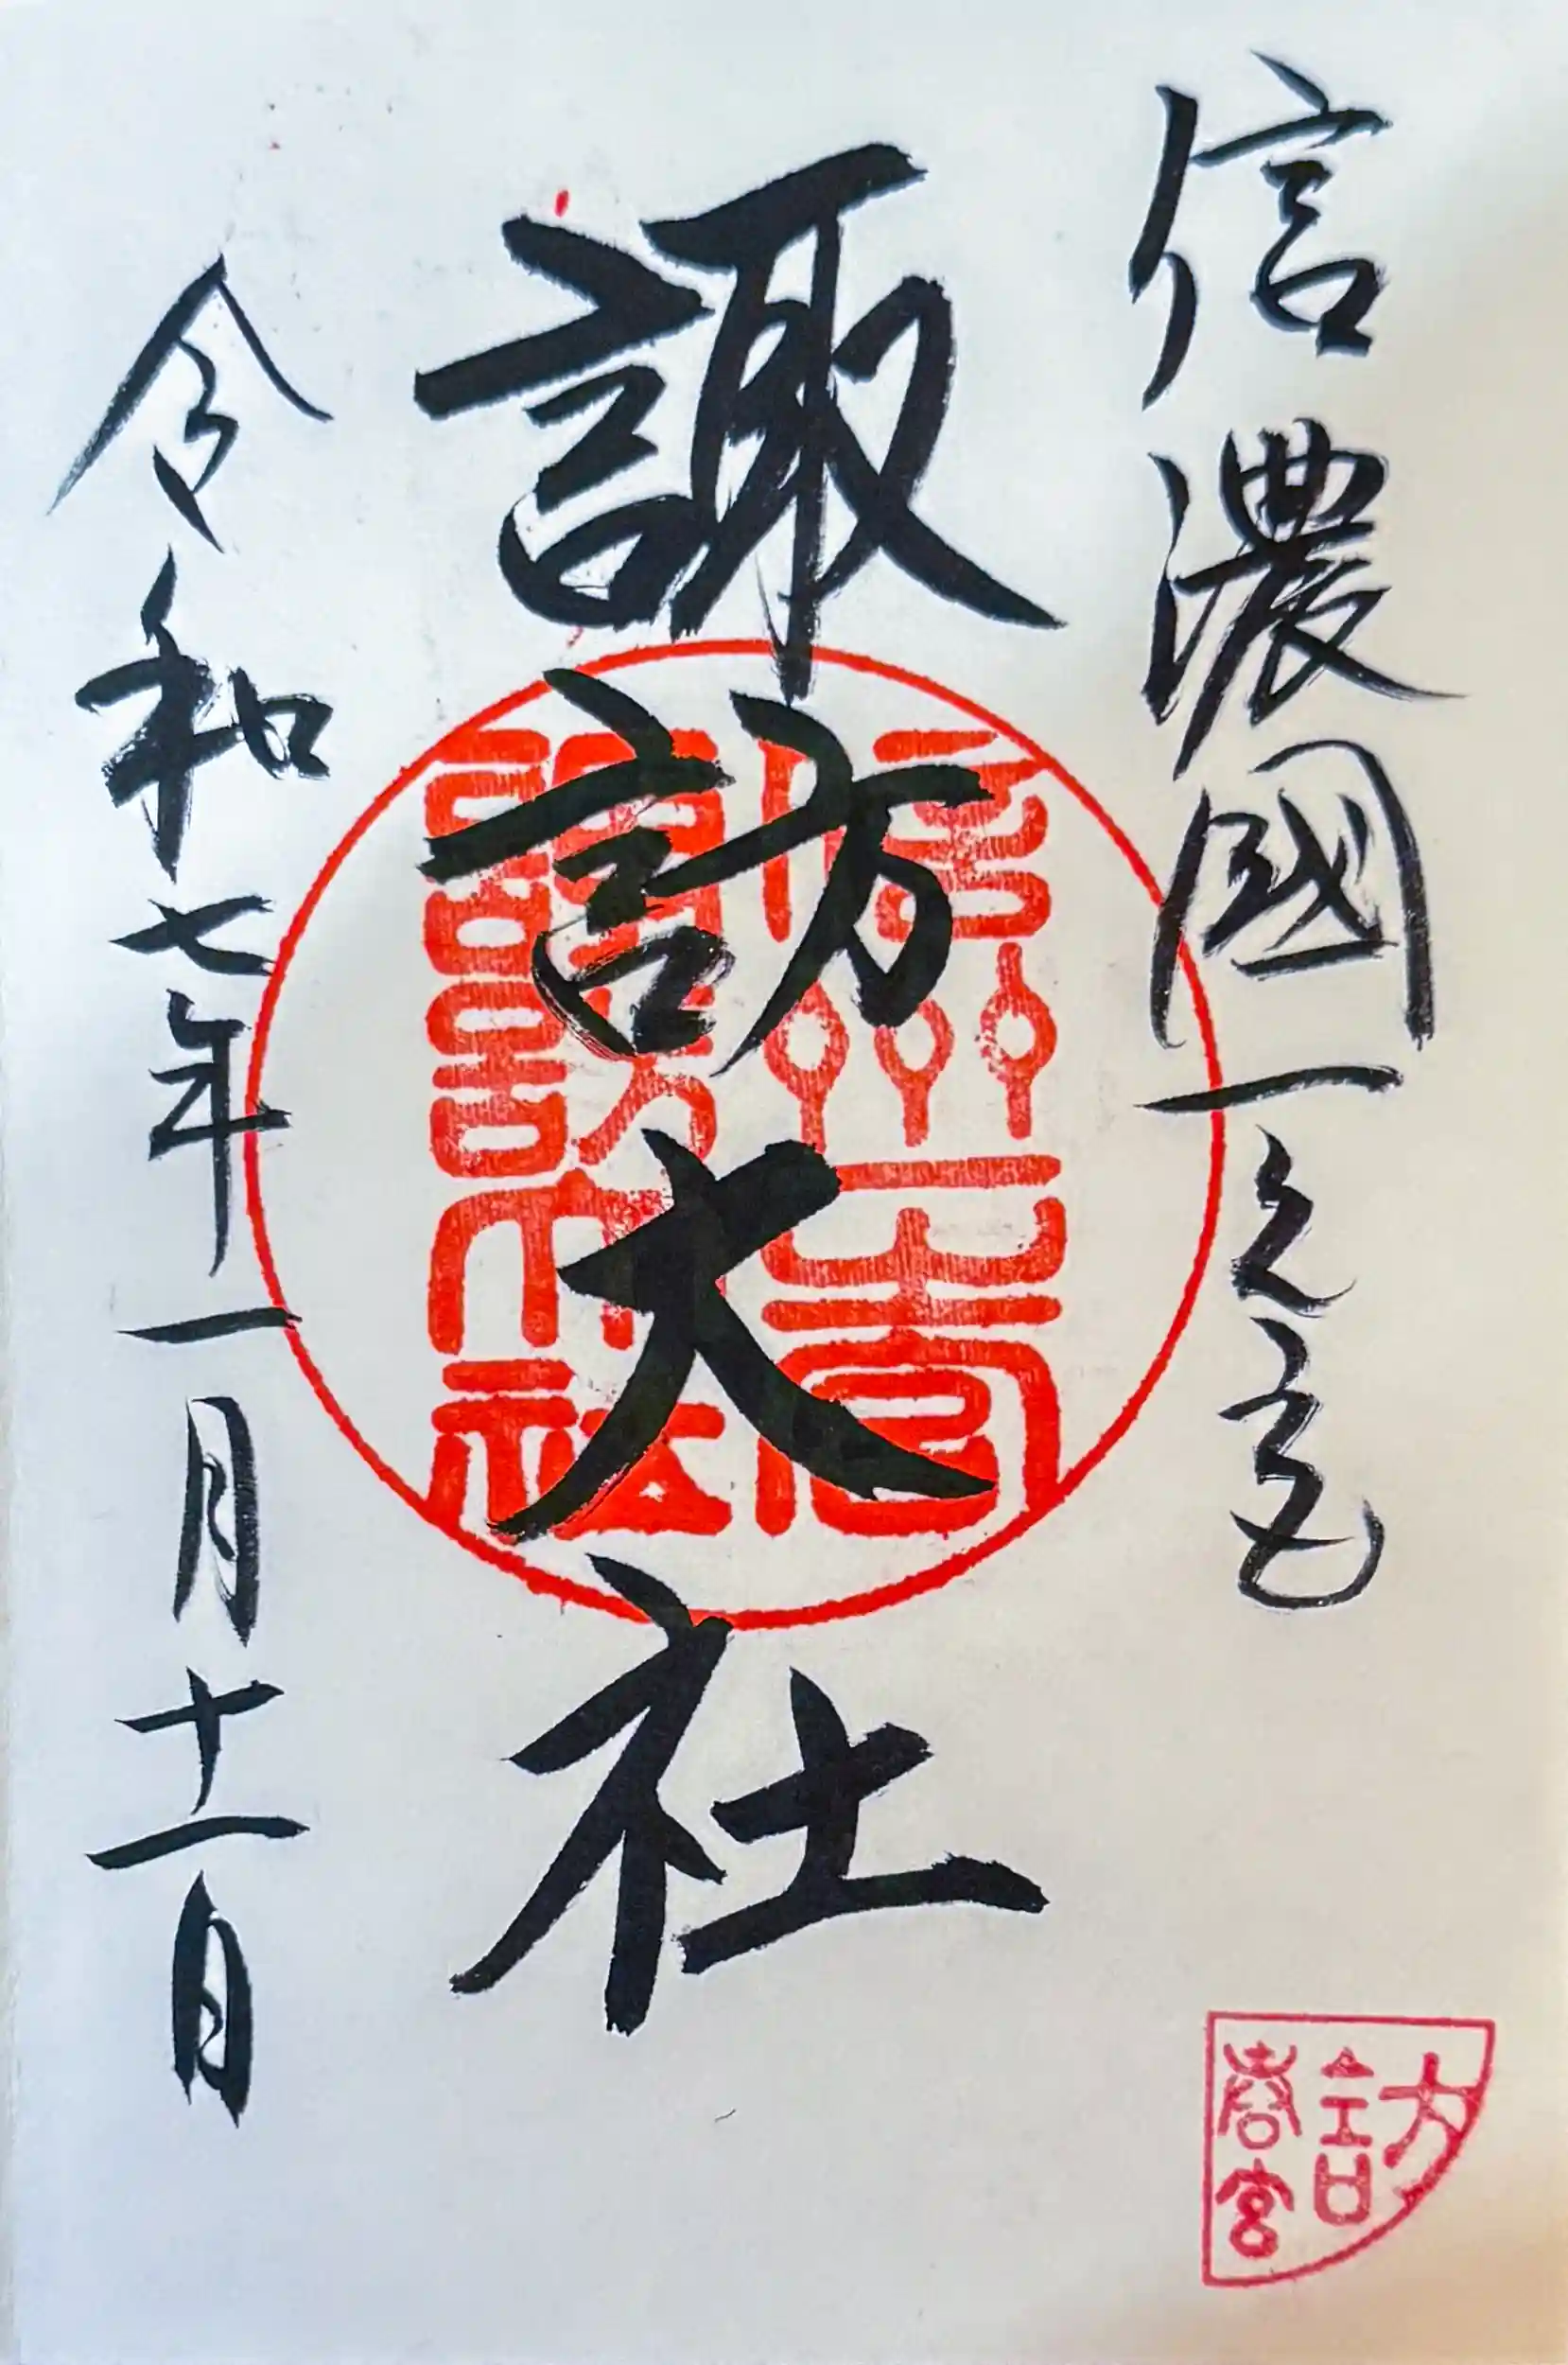 信濃國一之宮
諏訪大社
令和七年一月十一日
信州一之宮
諏訪大社
訪
春宮